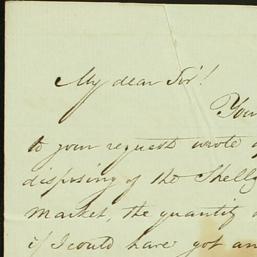 My dear Sir!
Your
to your request wrote
disposing of the Shell
Market, the quantity
if I could have got an